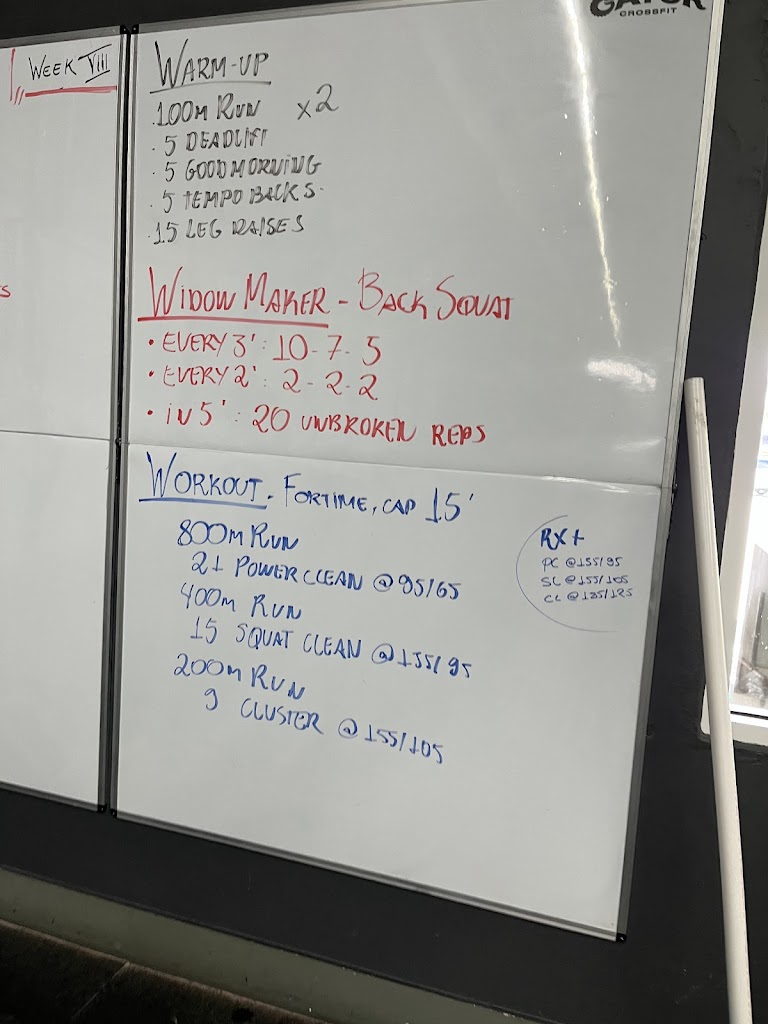 GATOR
CROSSFIT
WEEK VIII
WARM-UP
.100M RUN x2
. 5 DEADLIFT
. 5 GOODMORNING
. 5 TEMPO BACK S.
.15 LEG RAISES
WIDOW MAKER - BACK SQUAT
• EVERY 3' : 10 - 7 - 5
• EVERY 2' : 2 - 2 - 2
• IN 5' : 20 UNBROKEN REPS
WORKOUT - FORTIME, CAP 15'
800M RUN
21 POWER CLEAN @95/65
400M RUN
15 SQUAT CLEAN @135/95
200M RUN
9 CLUSTER @155/105
RX+
PC @155/95
SC @155/105
CL @185/125